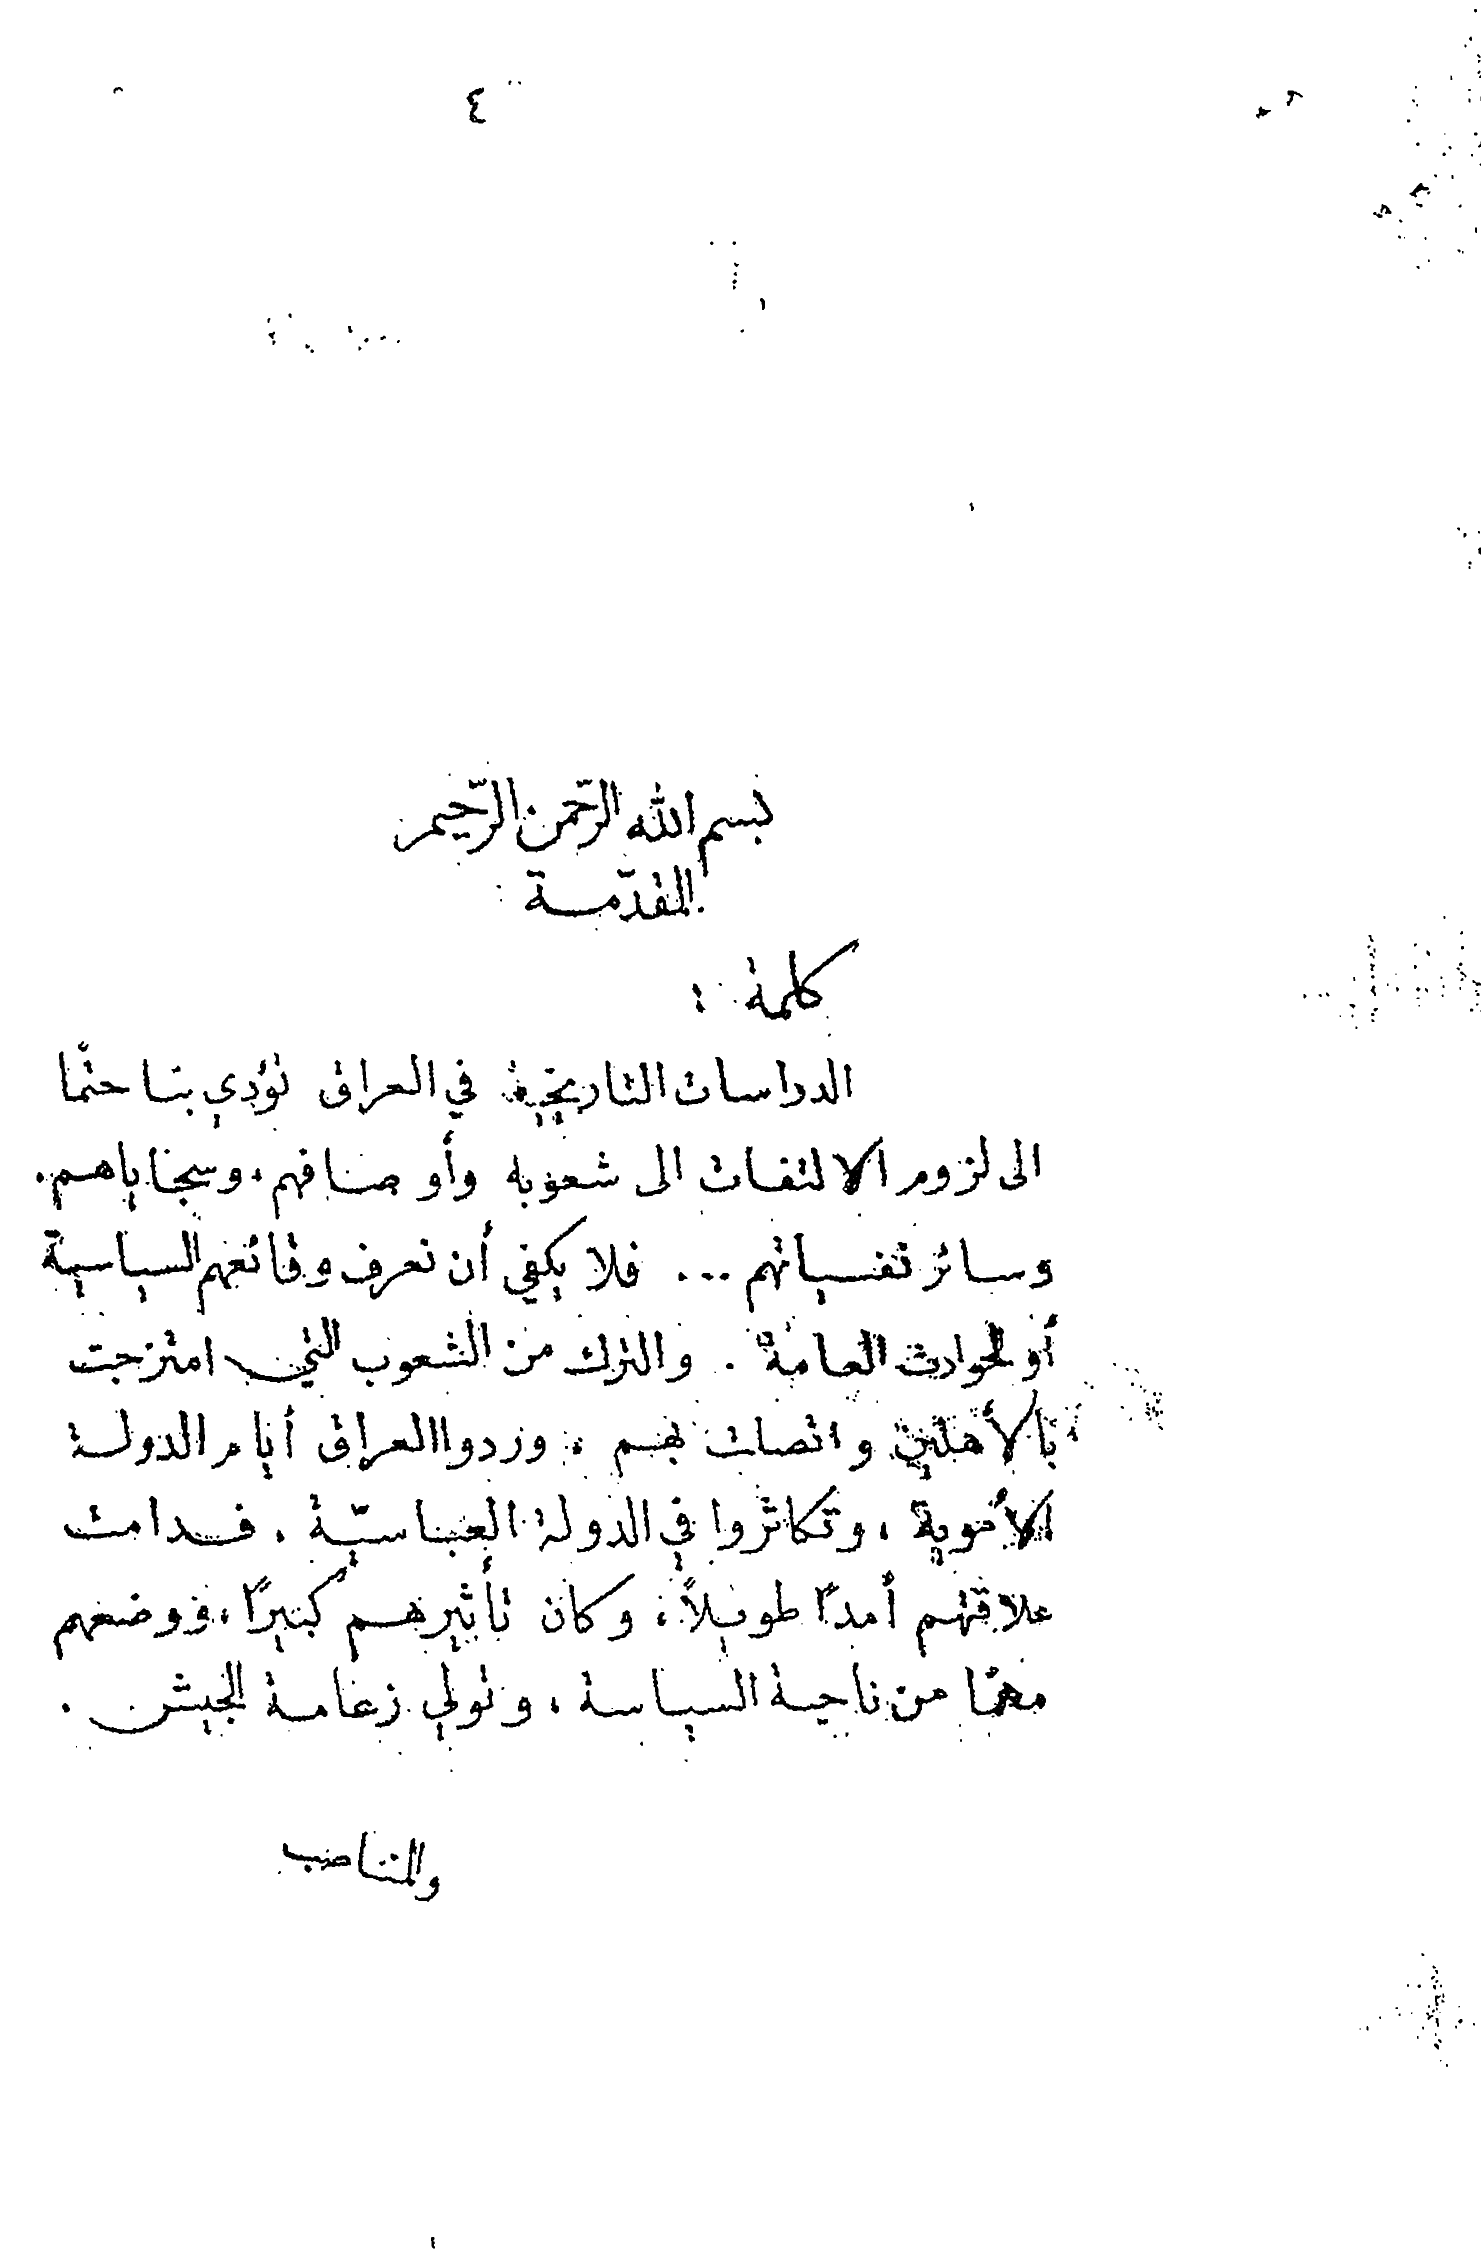 ٤
بسم الله الرّحمن الرّحيم
المقدّمـة
كلمة :
الدراسات التاريخية في العراق تؤدي بنا حتمًا
الى لزوم الالتفات الى شعوبه وأوصافهم، وسجاياهم.
وسائر نفسياتهم ... فلا يكفي أن نعرف وقائعهم السياسية
أو الحوادث العامة . والترك من الشعوب التي امتزجت
بالأهلين واتصلت بهم ، وردوا العراق أيام الدولة
الأموية ، وتكاثروا في الدولة العباسيّة . فدامت
علاقتهم أمدًا طويلاً ، وكان تأثيرهم كبيرًا ، ووضعهم
مهمًا من ناحية السياسة ، وتولي زعامة الجيش .
والمناصب